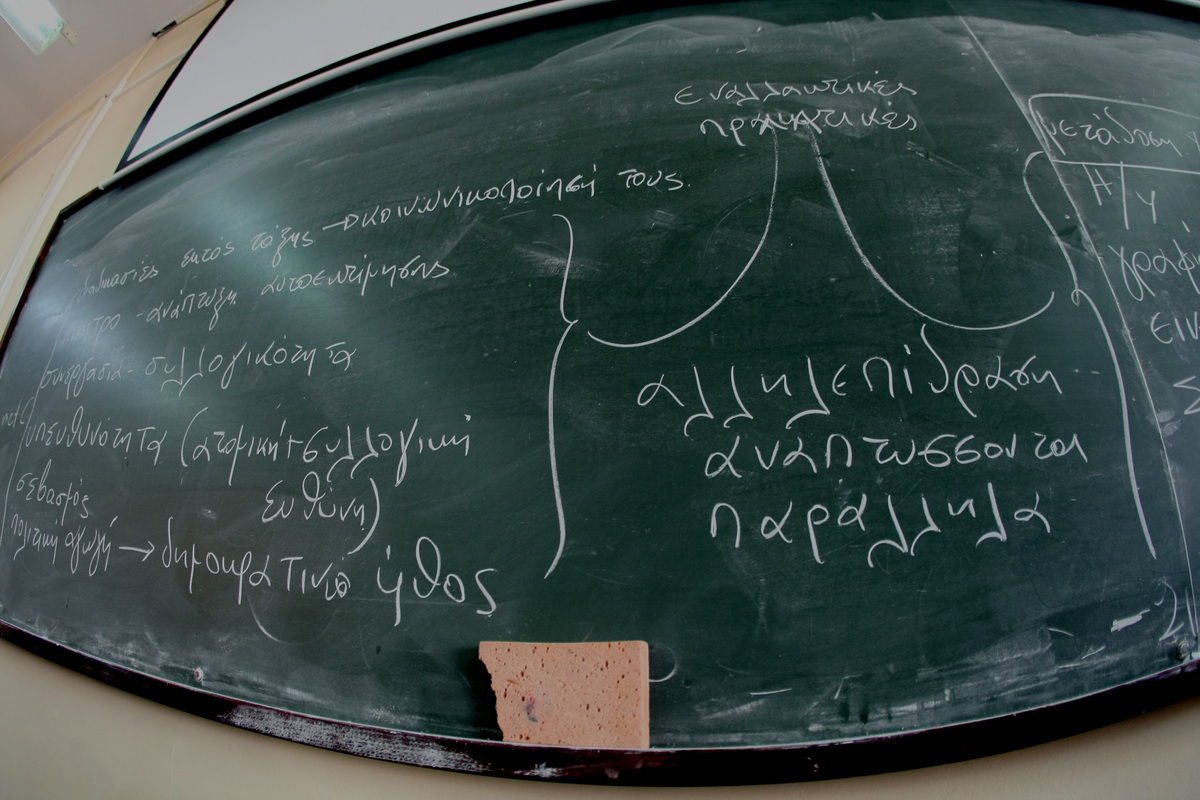 εναλλακτικές
πρακτικές
διαδικασίες εκτός τάξης → κοινωνικοποίησή τους
-ανάπτυξη αυτοεκτίμησης
συνεργασία - συλλογικότητα
υπευθυνότητα (ατομική + συλλογική
ευθύνη)
σεβασμός
πολιτική αγωγή → δημοκρατικό ήθος
αλληλεπίδραση
αναπτύσσονται
παράλληλα
μετάδοση
Η/Υ